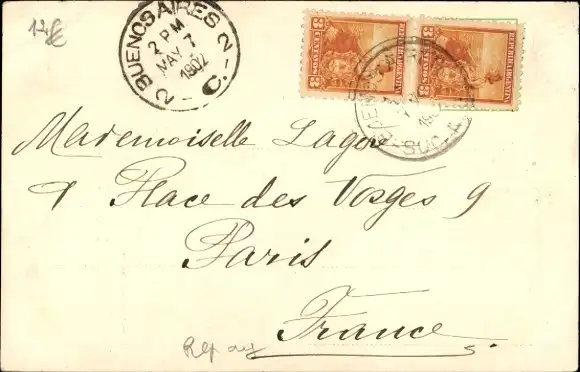 12€
BUENOS AIRES 2
2 PM
MAY 7
1902
2 - C. - 2
REPUBLICA ARGENTINA
3 CENTAVOS 3
REPUBLICA ARGENTINA
3 CENTAVOS 3
SUC. A
Mademoiselle Lagore
9 Place des Vosges 9
Paris
France